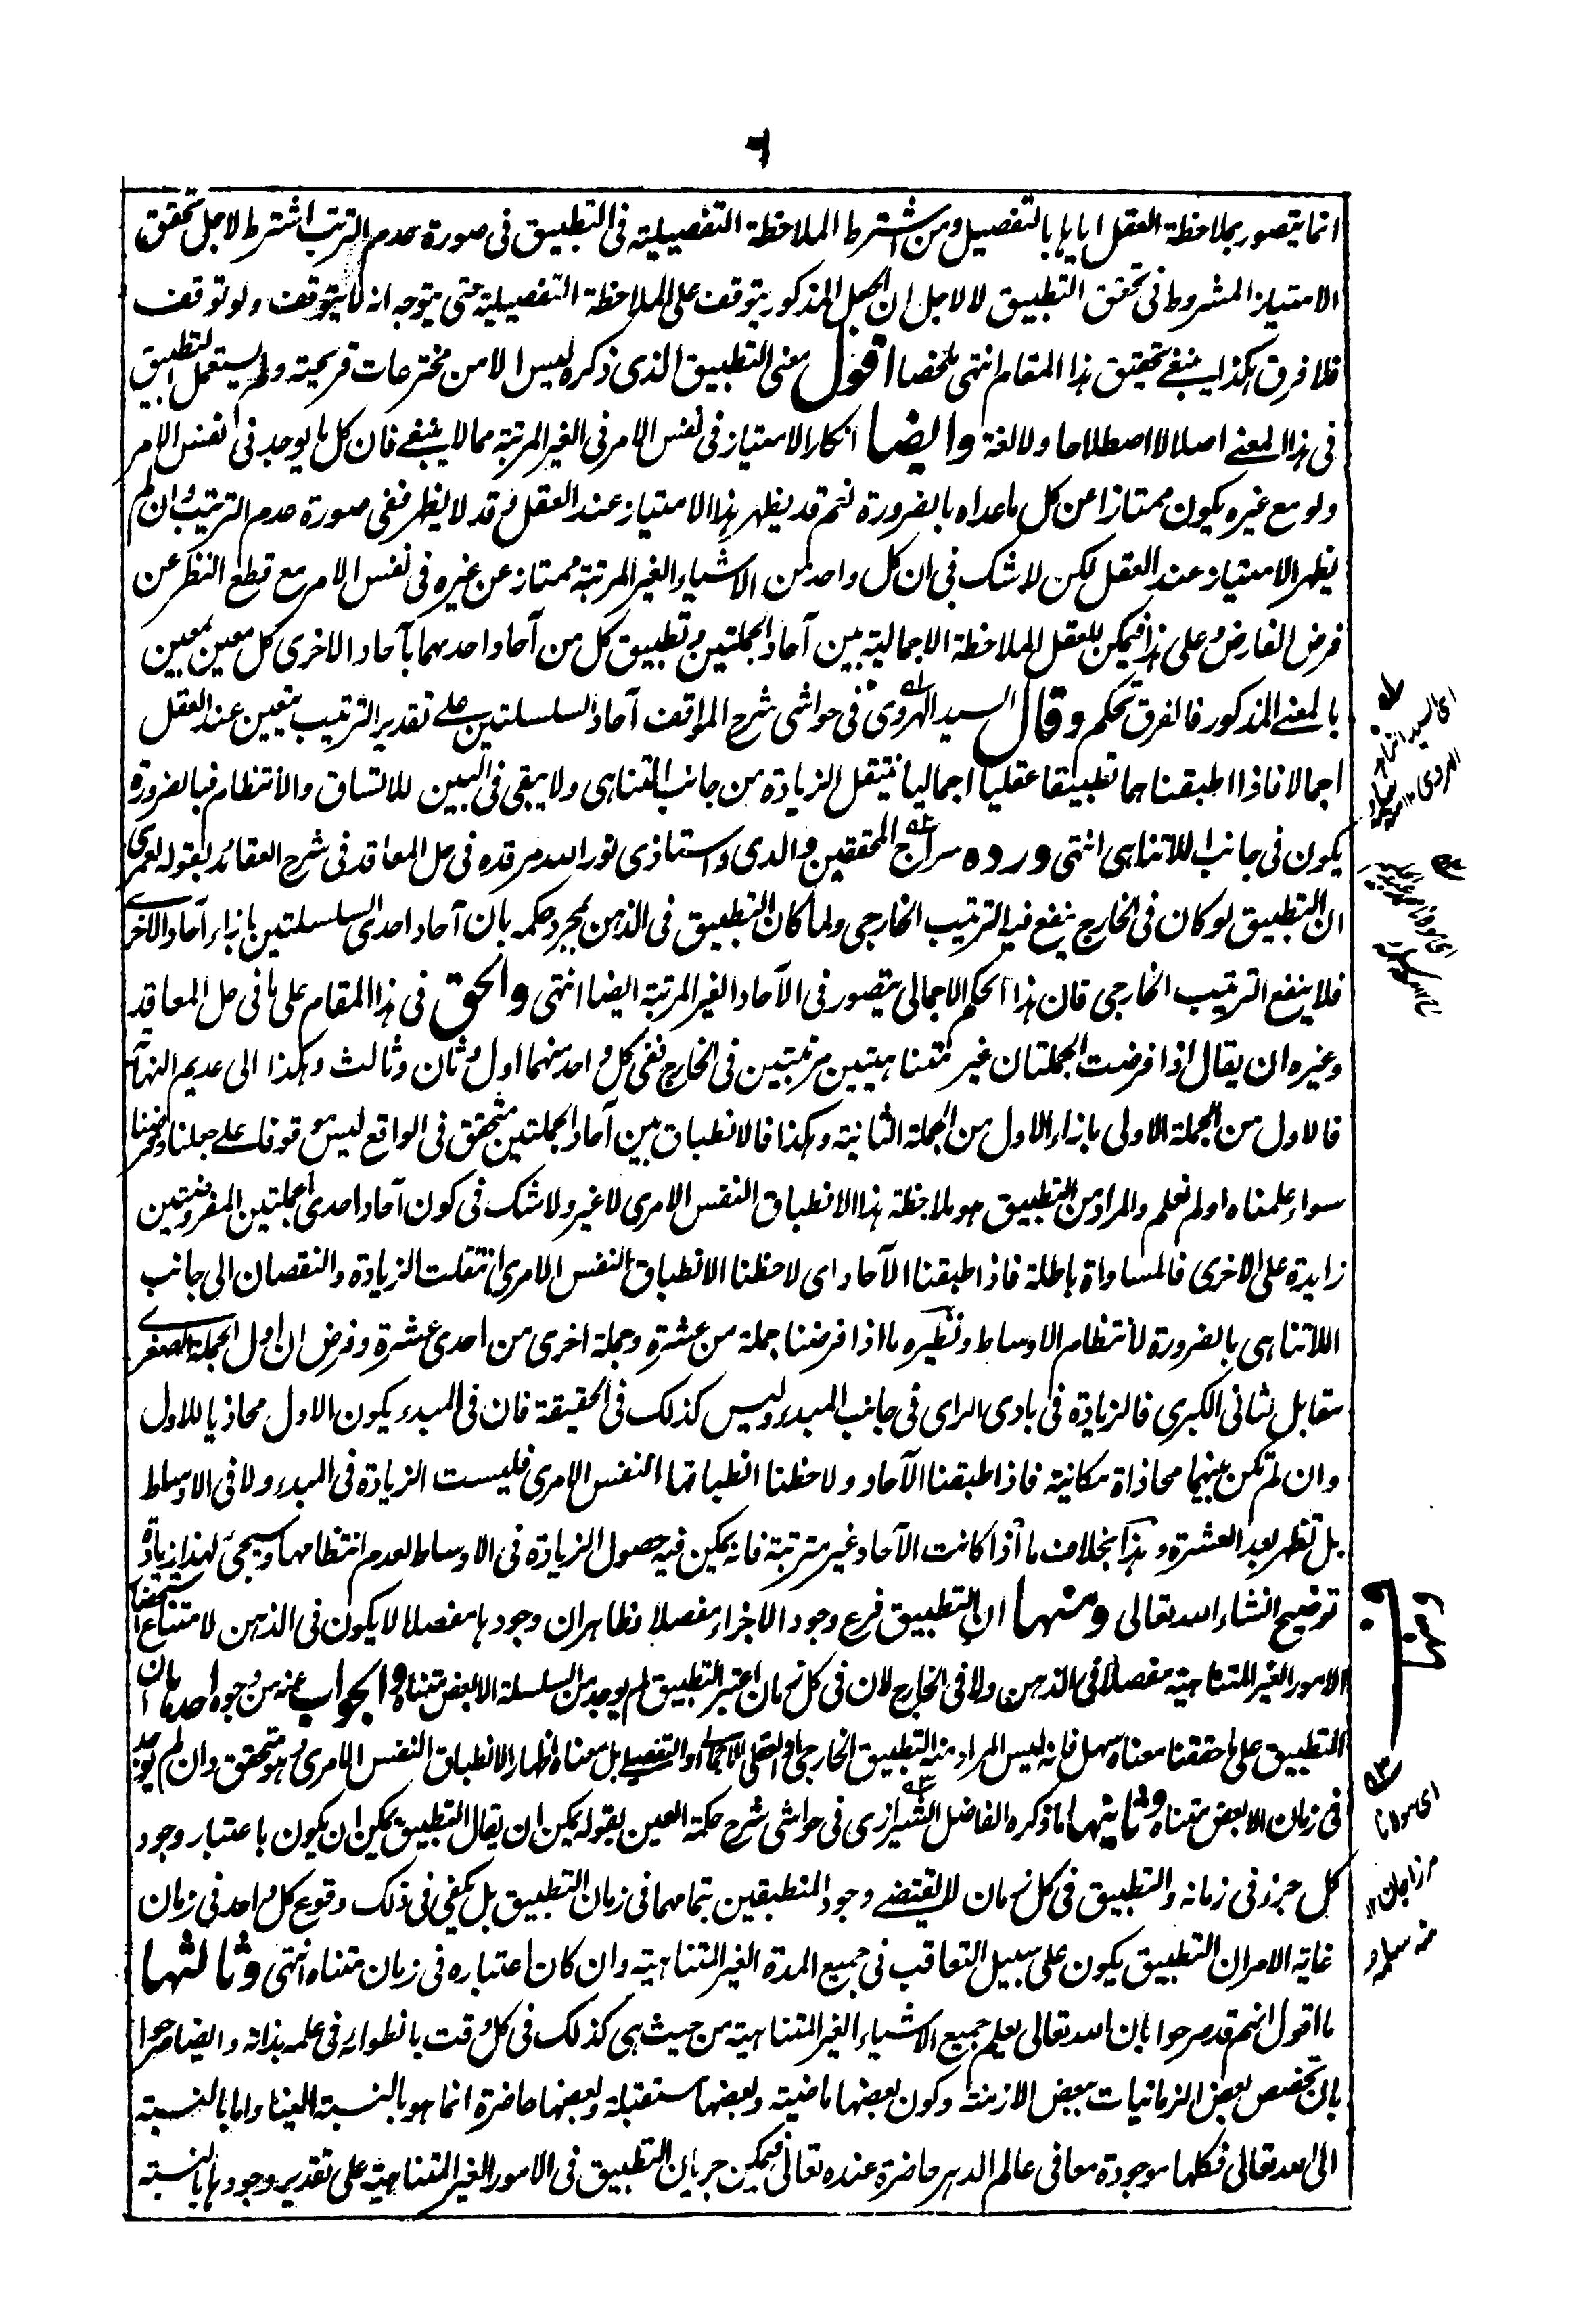 ٦
انما يتصور بملاحظة العقل اياها بالتفصيل ومن اشترط الملاحظة التفصيلية فى التطبيق فى صورة عدم الترتب اشترط لاجل تحقق
الامتياز المشروط فى تحقق التطبيق لا لاجل ان الجعل المذكور يتوقف على الملاحظة التفصيلية حتى يتوجه انه لا يتوقف ولو توقف
فلا فرق هكذا ينبغى تحقيق هذا المقام انتهى ملخصا اقول معنى التطبيق الذى ذكره ليس الا من مخترعات قريحته ولم يستعمل التطبيق
فى هذا المعنى اصلا لا اصطلاحا ولا لغة وايضا انكار الامتياز فى نفس الامر فى الغير المرتبة مما لا ينبغى فان كل ما يوجد فى نفس الامر
ولو مع غيره يكون ممتازا عن كل ما عداه بالضرورة نعم قد يظهر هذا الامتياز عند العقل وقد لا يظهر ففى صورة عدم الترتيب ان لم
يظهر الامتياز عند العقل لكن لا شك فى ان كل واحد من الاشياء الغير المرتبة ممتاز عن غيره فى نفس الامر مع قطع النظر عن
فرض الفارض وعلى هذا فيمكن للعقل الملاحظة الاجمالية بين آحاد الجملتين وتطبيق كل من آحاد احدهما بآحاد الاخرى كل معين بمعين
بالمعنى المذكور فالفرق تحكم وقال السيد الهروى فى حواشى شرح المواقف آحاد السلسلتين على تقدير الترتيب يتعين عند العقل
اجمالا فاذا اطبقناهما تطبيقا عقليا اجماليا فتنتقل الزيادة من جانب التناهى ولا يبقى فى البين للاتساق والانتظام فبالضرورة
يكون فى جانب اللاتناهى انتهى ورده سراج المحققين والدى واستاذى نور الله مرقده فى حل المعاقد فى شرح العقائد بقوله لعمرى
ان التطبيق لو كان فى الخارج ينفع فيه الترتيب الخارجى ولما كان التطبيق فى الذهن بمجرد حكمه بان آحاد احدى السلسلتين بازاء آحاد الاخرى
فلا ينفع الترتيب الخارجى فان هذا الحكم الاجمالى يتصور فى الآحاد الغير المرتبة ايضا انتهى والحق فى هذا المقام على ما فى حل المعاقد
وغيره ان يقال اذا فرضت الجملتان غير متناهيتين مرتبتين فى الخارج ففى كل واحد منهما اول وثان وثالث وهكذا الى عديم النهاية
فالاول من الجملة الاولى بازاء الاول من الجملة الثانية وهكذا فالانطباق بين آحاد الجملتين متحقق فى الواقع ليس موقوفا على جعلنا وفرضنا
سواء علمناه او لم نعلم والمراد من التطبيق هو ملاحظة هذا الانطباق النفس الامرى لا غير ولا شك فى كون آحاد احدى الجملتين المفروضتين
زايدة على الاخرى فالمساواة باطلة فاذا طبقنا الآحاد اى لاحظنا الانطباق النفس الامرى انتقلت الزيادة والنقصان الى جانب
اللاتناهى بالضرورة لانتظام الاوساط ونظيره ما اذا فرضنا جملة من عشرة وجملة اخرى من احدى عشرة وفرض ان اول الجملة الصغرى
مقابل لثانى الكبرى فالزيادة فى بادى الراى فى جانب المبدء وليس كذلك فى الحقيقة فان فى المبدء يكون الاول محاذيا للاول
وان لم تكن بينهما محاذاة مكانية فاذا طبقنا الآحاد ولاحظنا انطباقها النفس الامرى فليست الزيادة فى المبدء ولا فى الاوساط
بل تظهر بعد العشرة وهذا بخلاف ما اذا كانت الآحاد غير مترتبة فانه يمكن فيه حصول الزيادة فى الاوساط لعدم انتظامها وسيجئ لهذا زيادة
توضيح انشاء الله تعالى ومنها ان التطبيق فرع وجود الاجزاء مفصلا وظاهر ان وجودها مفصلا لا يكون فى الذهن لامتناع استحضار
الامور الغير المتناهية مفصلا فى الذهن ولا فى الخارج لان فى كل زمان اعتبر التطبيق لم يوجد من السلسلة الا بعض متناه والجواب عنه من وجوه احدها ان
التطبيق على ما حققنا معناه سهل فانه ليس المراد منه التطبيق الخارجى او العقلى الاجمالى او التفصيلى بل معناه اظهار الانطباق النفس الامرى وهو متحقق وان لم يوجد
فى زمان الا بعض متناه وثانيها ما ذكره الفاضل الشيرازى فى حواشى شرح حكمة العين بقوله يمكن ان يقال التطبيق يمكن ان يكون باعتبار وجود
كل جزء فى زمانه والتطبيق فى كل زمان لا يقتضى وجود المنطبقين بتمامهما فى زمان التطبيق بل يكفى فى ذلك وقوع كل واحد فى زمان
غاية الامر ان التطبيق يكون على سبيل التعاقب فى جميع المدة الغير المتناهية وان كان اعتباره فى زمان متناه انتهى وثالثها
ما اقول انهم قد صرحوا بان الله تعالى يعلم جميع الاشياء الغير المتناهية من حيث هى كذلك فى كل وقت بانطوائه فى علمه بذاته وايضا صرحوا
بان تخصص بعض الزمانيات ببعض الازمنة وكون بعضها ماضية وبعضها مستقبلة وبعضها حاضرة انما هو بالنسبة الينا واما بالنسبة
الى الله تعالى فكلها موجودة معا فى عالم الدهر حاضرة عنده تعالى فيمكن جريان التطبيق فى الامور الغير المتناهية على تقدير وجودها بالنسبة
اى السيد الزاهد
الهروى ١٢
اى مولانا
مرزا جان ١٢